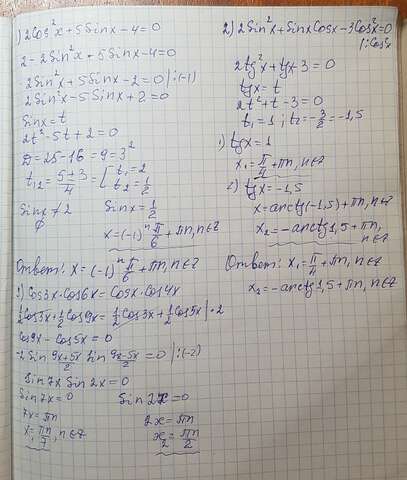 1) 2Cos²x+5Sinx-4=0
2-2Sin²x+5Sinx-4=0
-2Sin²x+5Sinx-2=0 |:(-1)
2Sin²x-5Sinx+2=0
Sinx=t
2t²-5t+2=0
D=25-16=9=3²
t₁,₂=(5±3)/4=[t₁=2 t₂=1/2
Sinx≠2 Sinx=1/2
∅ x=(-1)ⁿ π/6+πn, n∈Z
Ответ: x=(-1)ⁿ π/6+πn, n∈Z
2) 2Sin²x+SinxCosx-3Cos²x=0
|:Cos²x
2tg²x+tgx-3=0
tgx=t
2t²+t-3=0
t₁=1; t₂=-3/2=-1,5
1) tgx=1
x₁=π/4+πn, n∈Z
2) tgx=-1,5
x=arctg(-1,5)+πn, n∈Z
x₂=-arctg1,5+πn,
n∈Z
Ответ: x₁=π/4+πn, n∈Z
x₂=-arctg1,5+πn, n∈Z
3) Cos3x·Cos6x=Cosx·Cos4x
1/2Cos3x+1/2Cos9x=1/2Cos3x+1/2Cos5x |·2
Cos9x-Cos5x=0
-2Sin (9x+5x)/2 Sin (9x-5x)/2=0 |:(-2)
Sin7x Sin2x=0
Sin7x=0 Sin2x=0
7x=πn 2x=πn
x₁=πn/7, n∈Z x₂=πn/2